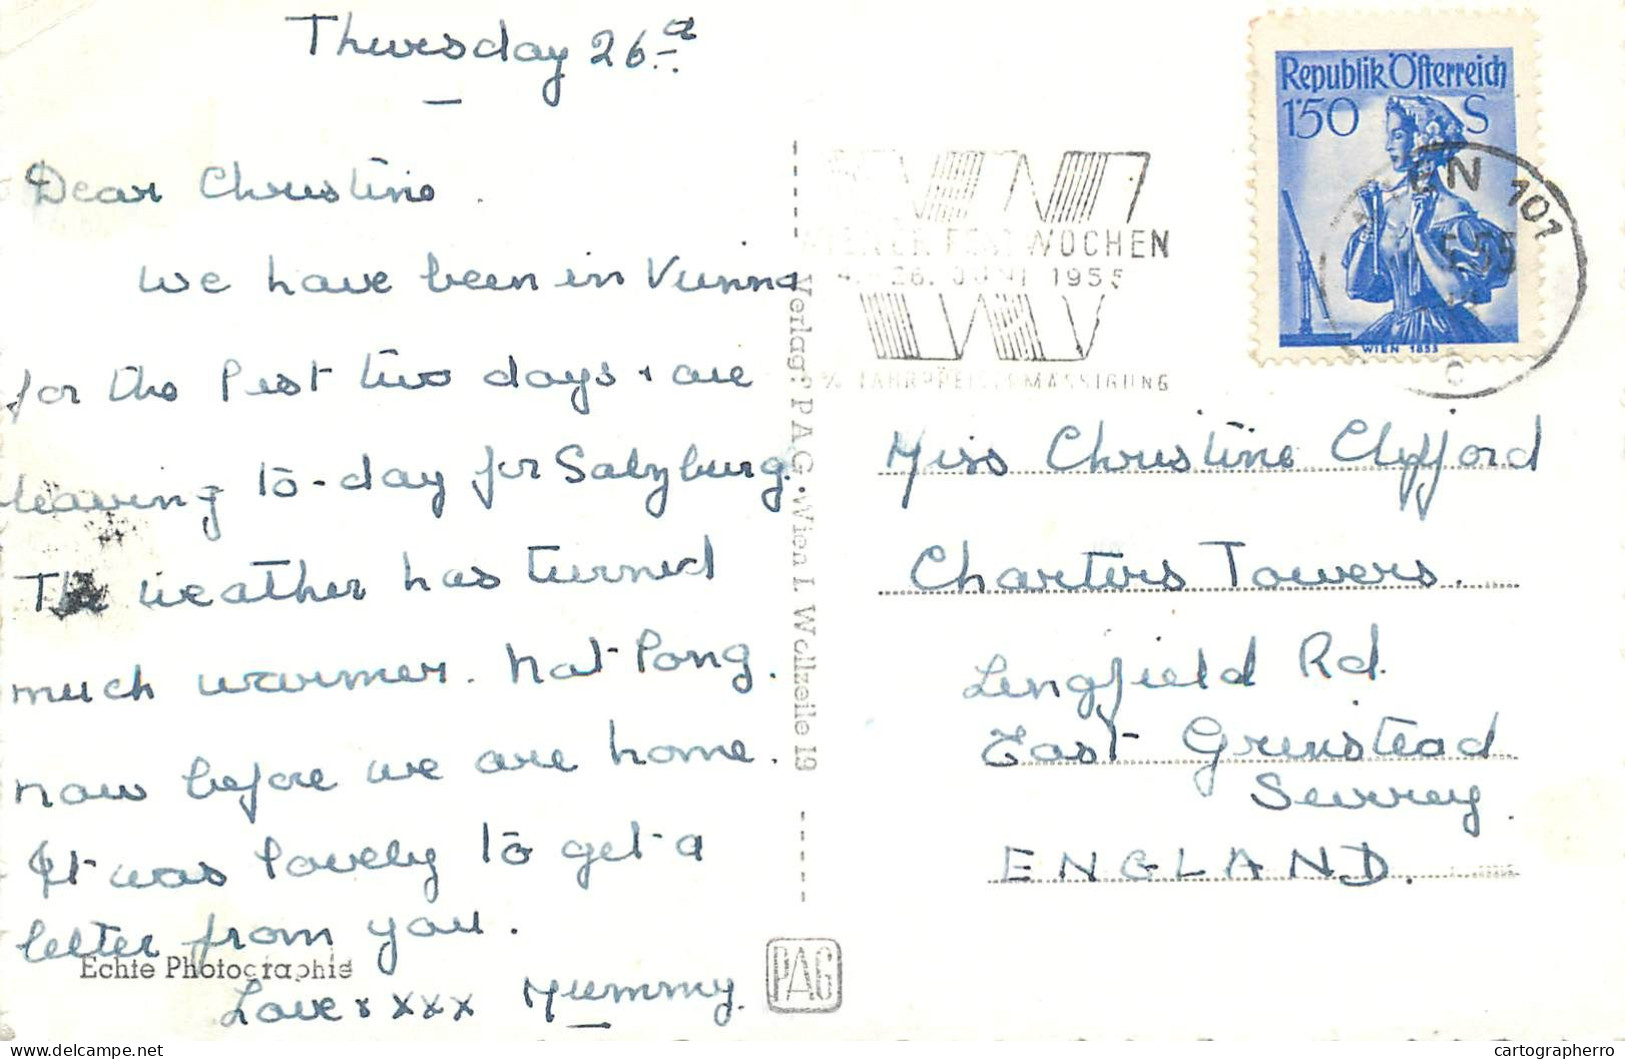 Thursday 26th
Dear Christine.
We have been in Vienna
for the Past two days & are
leaving to-day for Salzburg.
The weather has turned
much warmer. Not long.
now before we are home.
It was lovely to get a
letter from you.
Love x xxx Mummy.
Echte Photographie
Verlag: PAG. Wien I. Wollzeile 19
PAG
Republik Österreich
1'50 S
WIEN 1853
WIEN 101
55
C
WIENER FESTWOCHEN
4. - 26. JUNI 1955
% FAHRPREISERMÄSSIGUNG
Miss Christine Clyfford
Charters Towers.
Lingfield Rd.
East Grinstead
Surrey.
ENGLAND.
cartographerro